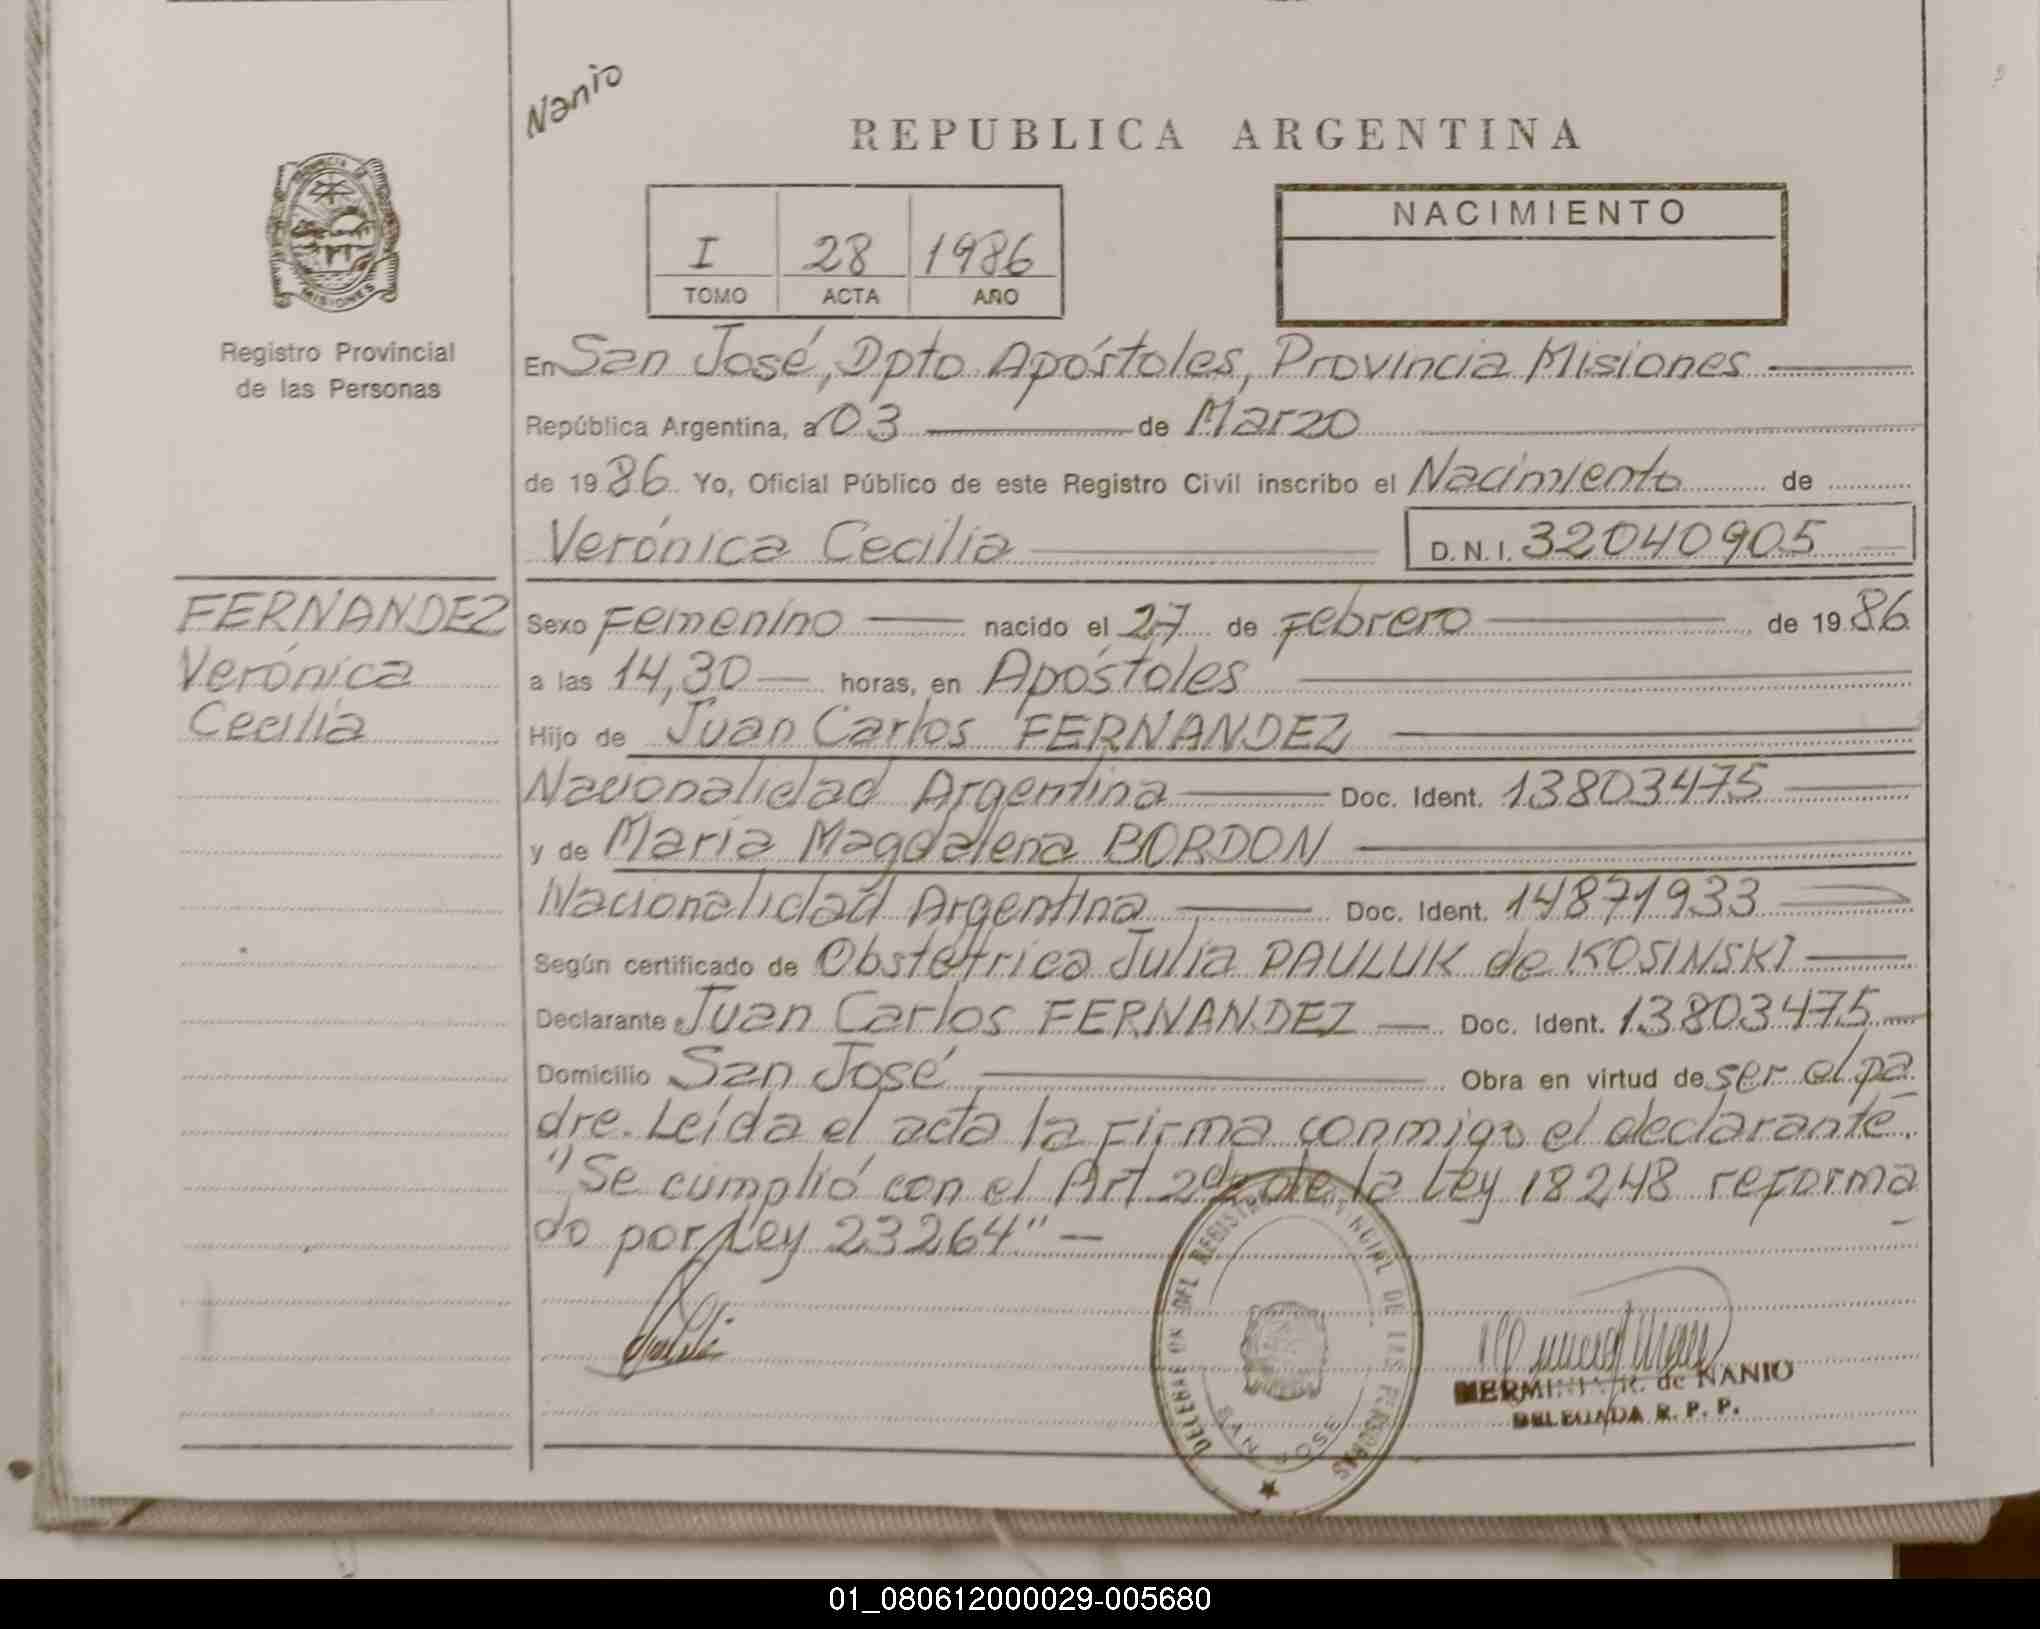 Nanio
REPUBLICA ARGENTINA
PROVINCIA DE
MISIONES
Registro Provincial
de las Personas
I 28 1986
TOMO ACTA AÑO
NACIMIENTO
En San José, Dpto Apóstoles, Provincia Misiones
República Argentina, a 03 de Marzo
de 1986 Yo, Oficial Público de este Registro Civil inscribo el Nacimiento de
Verónica Cecilia D.N.I. 32040905
FERNANDEZ
Verónica
Cecilia
Sexo Femenino nacido el 27 de Febrero de 1986
a las 14,30 horas, en Apóstoles
Hijo de Juan Carlos FERNANDEZ
Nacionalidad Argentina Doc. Ident. 13803475
y de María Magdalena BORDON
Nacionalidad Argentina Doc. Ident. 14871933
Según certificado de Obstétrica Julia PAULUK de KOSINSKI
Declarante Juan Carlos FERNANDEZ Doc. Ident. 13803475
Domicilio San José Obra en virtud de ser el pa
dre. Leída el acta la firma conmigo el declarante.
"Se cumplió con el Art 2º de la Ley 18248 reforma
do por Ley 23264"
DEL REGISTRO PROVINCIAL DE LAS PERSONAS
SAN JOSE
HERMINIA R. de NANIO
DELEGADA R. P. P.
01_080612000029-005680